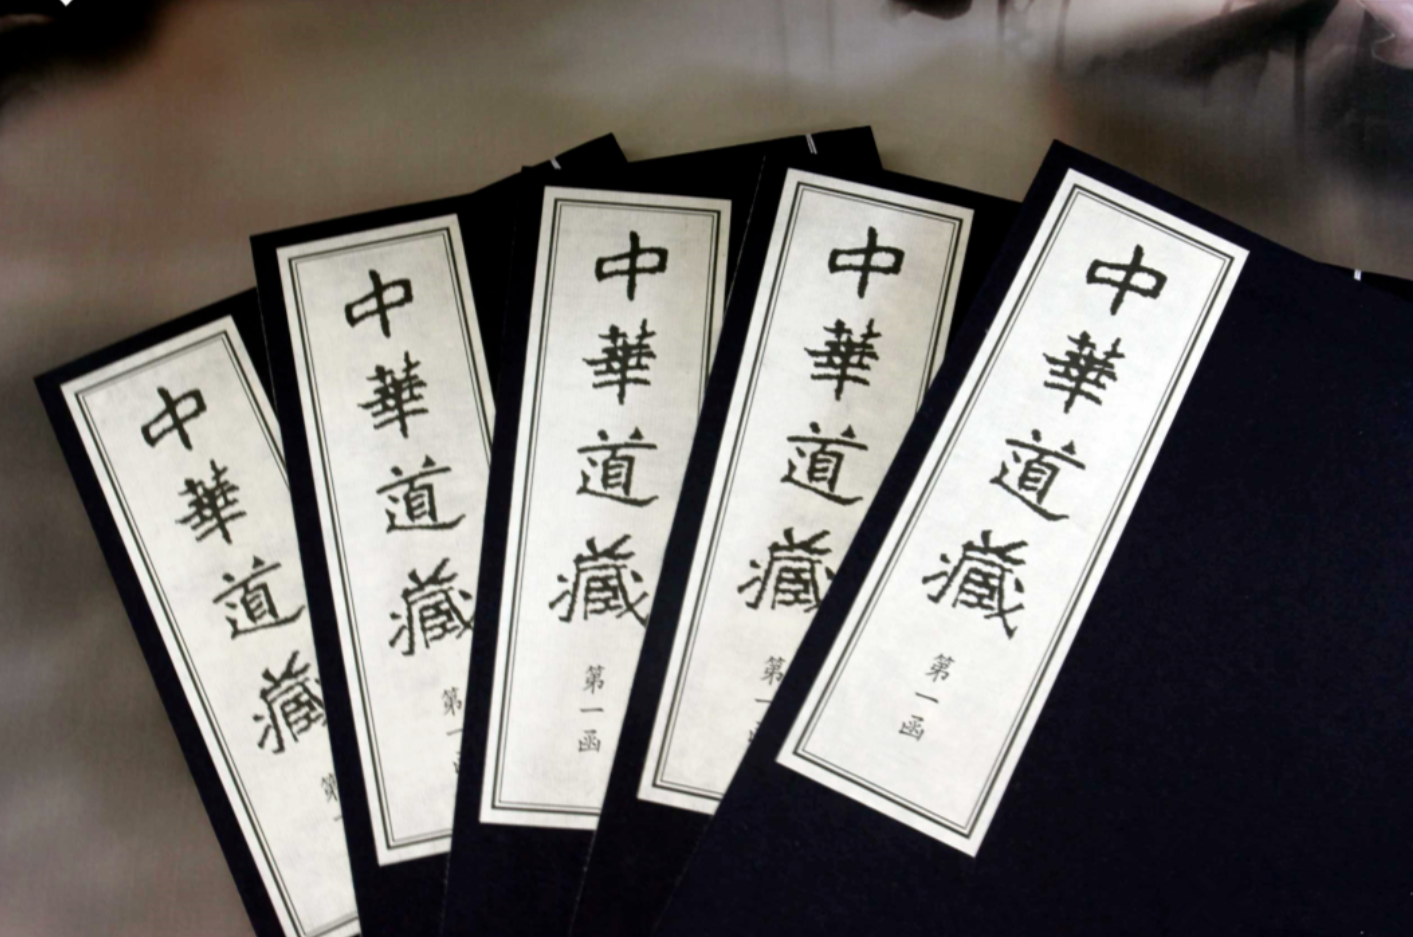 中華道藏
第一
中華道藏
第一
中華道藏
第一函
中華道藏
第一
中華道藏
第一函